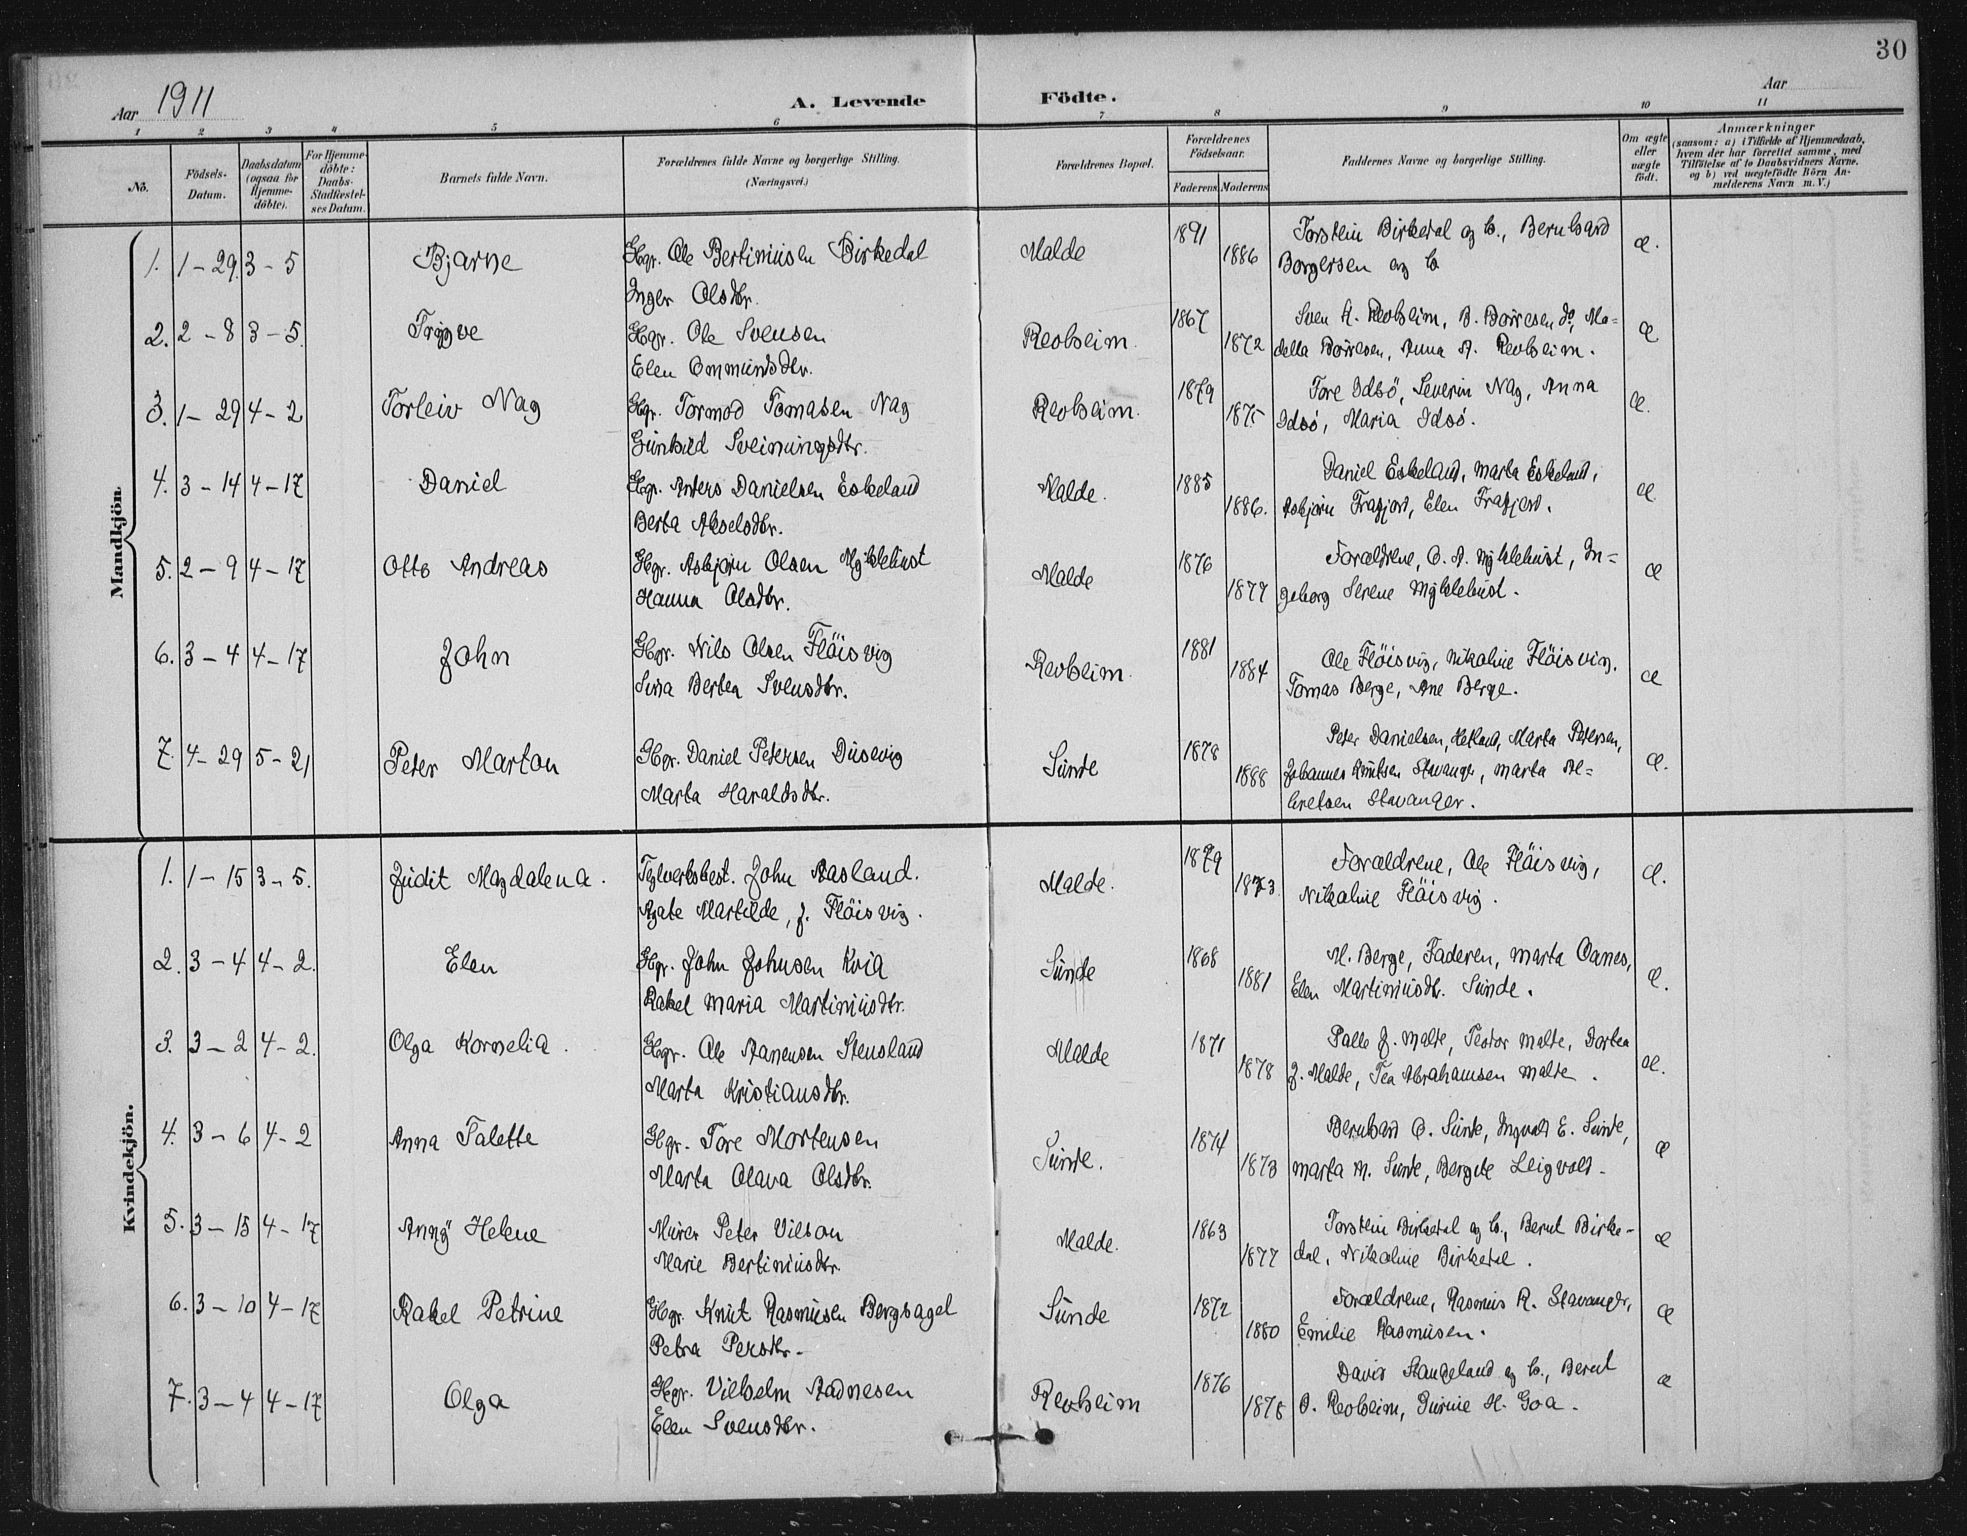 30
Aar 1911 A. Levende Födte. Aar
1 2 3 4 5 6 7 8 9 10 11
No. Födsels-Datum. Daabsdatum (ogsaa for Hjemme-döbte). For Hjemme-döbte: Daabs-Stadfæstel-ses Datum. Barnets fulde Navn. Forældrenes fulde Navne og borgerlige Stilling. (Næringsvei.) Forældrenes Bopæl. Forældrenes Födselsaar. Faderens Moderens Faddernes Navne og borgerlige Stilling. Om ægte eller uægte födt. Anmærkninger (saasom: a) i Tilfælde af Hjemmedaab, hvem der har forrettet samme, med Tilföielse af to Daabsvidners Navne. og b) ved uægtefödte Börn An-melderens Navn m. V.)
Mandkjön.
1. 1 - 29. 3 - 5 Bjarne Gbgr. Ole Bertiniusen Birkedal Malde 1891 Torstein Birkedal og h., Bernhard æ.
Inger Olsdtr. 1886 Borgersen og h.
2. 2 - 8 3 - 5. Trygve Gbgr. Ole Svensen Revheim. 1867 Sven A. Revheim, B. Børresen do, Ma- æ
Elen Ommundsdtr. 1872 della Børresen, Anna A. Revheim.
3. 1 - 29 4 - 2 Torleiv Nag Gbgr. Tormod Tomasen Nag Revheim. 1879 Tore Idsö, Severin Nag, Anna æ.
Gunhild Sveinungsdtr. 1875 Idsö, Maria Idsö.
4. 3 - 14 4 - 17 Daniel Gbgr. Anders Danielsen Eskeland Malde. 1885 Daniel Eskeland, Marta Eskeland, æ
Berta Akselsdtr. 1886. Asbjørn Frafjord, Elen Frafjord.
5. 2 - 9 4 - 17 Otto Andreas Gbgr. Asbjørn Olsen Myklebust Malde 1876 Forældrene, O. A. Myklebust, In= æ
Hanna Olsdtr. 1877 geborg Serene Myklebust.
6. 3 - 4 4 - 17 John Gbgr. Nils Olsen Fløisvig Revheim. 1881 Ole Fløisvig, Nikoline Fløisvig, æ
Berten Svensdtr. 1884 Tomas Berge, Ane Berge.
7. 4 - 29 5 - 21 Peter Marton Gbgr. Daniel Petersen Dusevig Sunde 1878 Peter Danielsen, Hetland, Marta Petersen, æ.
Marta Haraldsdtr. 1888 Johannes Knutsen Stavanger, Marta Al=
bretsen Stavanger.
Kvindekjön.
1. 1 - 15 3 - 5. Judit Magdalena. Teglverksbest. John Aasland. Malde. 1879 Forældrene, Ole Fløisvig, æ.
Agate Martilde, f. Fløisvig. 1873 Nikoline Fløisvig.
2. 3 - 4 4 - 2. Elen Gbgr. John Johnsen Kvia Sunde 1868 M. Berge, Faderen, Marta Oanes, æ.
Rakel Maria Martiniusdtr. 1881 Elen Martiniusdtr. Sunde.
3. 3 - 2 4 - 2. Olga Kornelia. Gbgr. Ole Aanensen Stensland Malde 1871 Palle J. Malde, Teodor Malde, Dortea æ.
Marta Kristiansdtr. 1878 J. Malde, Tea Abrahamsen Malde.
4. 3 - 6 4 - 2 Anna Talette Gbgr. Tore Mortensen Sunde. 1874 Bernhard O. Sunde, Ingvald E. Sunde, æ
Marta Olava Olsdtr. 1873 Marta M. Sunde, Bergite Leigvold.
5. 3 - 15 4 - 17 Anny Helene Murer Peter Vilson Malde. 1863 Torstein Birkedal og h., Bernt Birke- æ
Marie Bertiniusdtr 1877 dal, Nikoline Birkedal.
6. 3 - 10 4 - 17 Rakel Petrine Gbgr. Knut Rasmusen Bergsagel Sunde 1872 Forældrene, Rasmus R. Stavanger, æ
Petra Persdtr. 1880 Emilie Rasmusen.
7. 3 - 4 4 - 17 Olga Gbgr. Vilhelm Aadnesen Revheim 1876 David Stangeland og h., Bernt æ
Elen Svensdtr. 1878 O. Revheim, Gurine H. Goa.